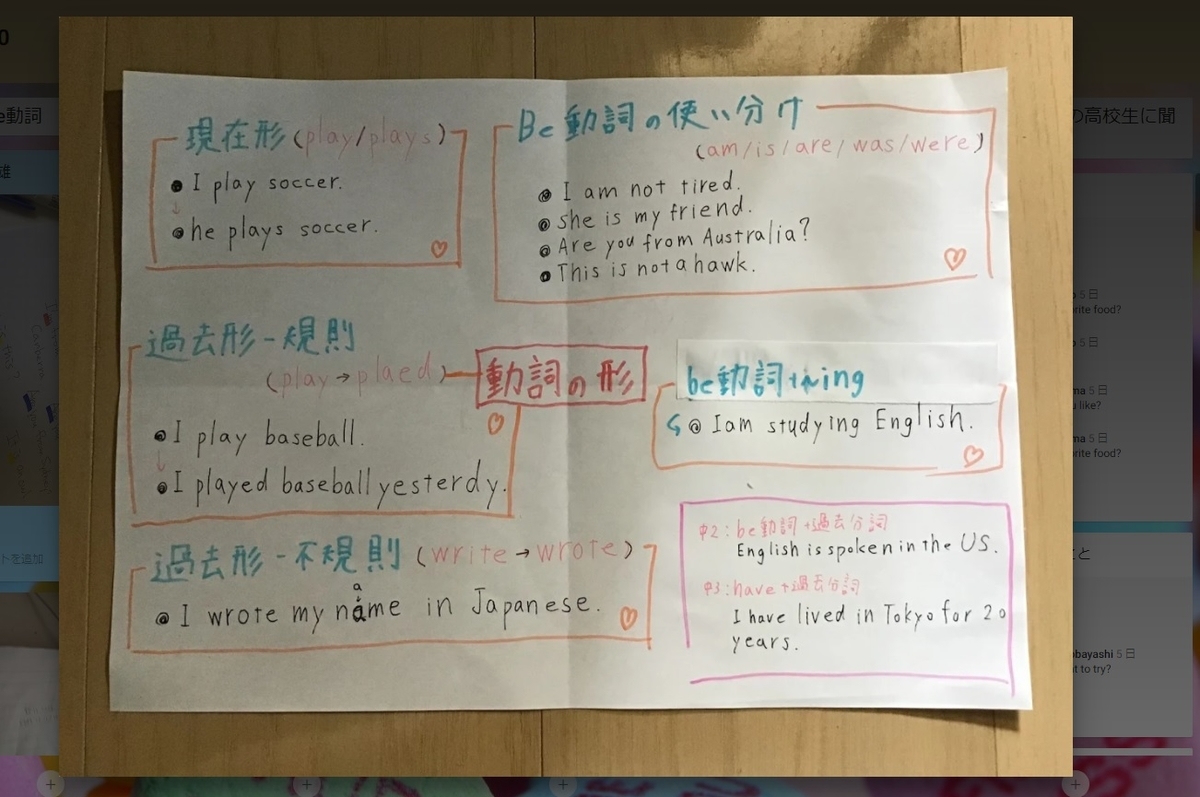 現在形(play/plays)
I play soccer.
he plays soccer.
Be動詞の使い分け
(am/is/are/was/were)
I am not tired.
she is my friend.
Are you from Australia?
This is not a hawk.
過去形-規則
(play→plaed)
動詞の形
I play baseball.
I played baseball yesterdy.
be動詞+ing
I am studying English.
過去形-不規則(write→wrote)
a
I wrote my name in Japanese.
中2:be動詞+過去分詞
English is spoken in the US.
中3:have+過去分詞
I have lived in Tokyo for 20
years.
0
e動詞
雄
トを追加
の高校生に聞
5日
rite food?
5日
ma 5日
like?
ma 5日
rite food?
こと
obayashi 5日
t to try?